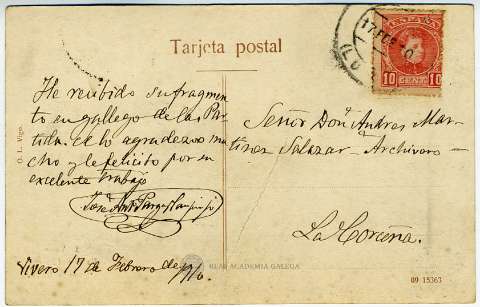 Tarjeta postal
He recibido su fragmen-
to en gallego de las Par-
tidas. Le lo agradezco mu-
cho y le felicito por su
excelente trabajo
José
Vivero 17 de Febrero de 1910.
Señor Don Andres Mar-
tinez Salazar - Archivero -
La Coruña.
ESPAÑA
10 CENT. 10
17 FEB
O. L. Vigo.
REAL ACADEMIA GALEGA
09 15363